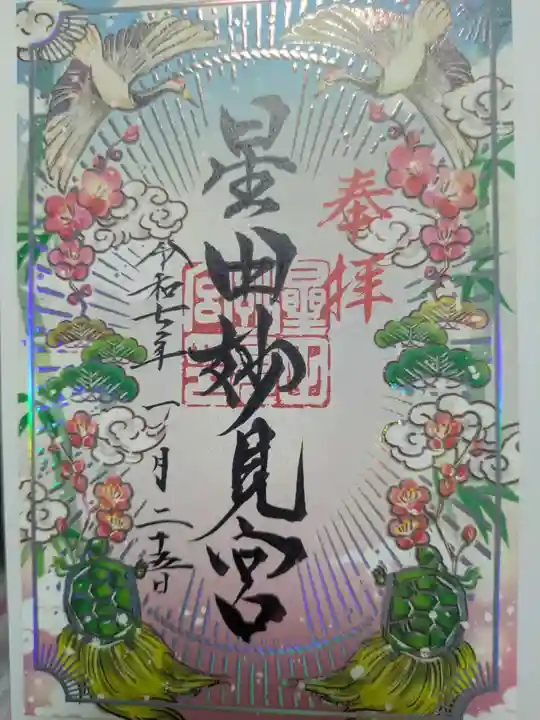 奉拝
星田妙見宮
令和七年一月二十五日